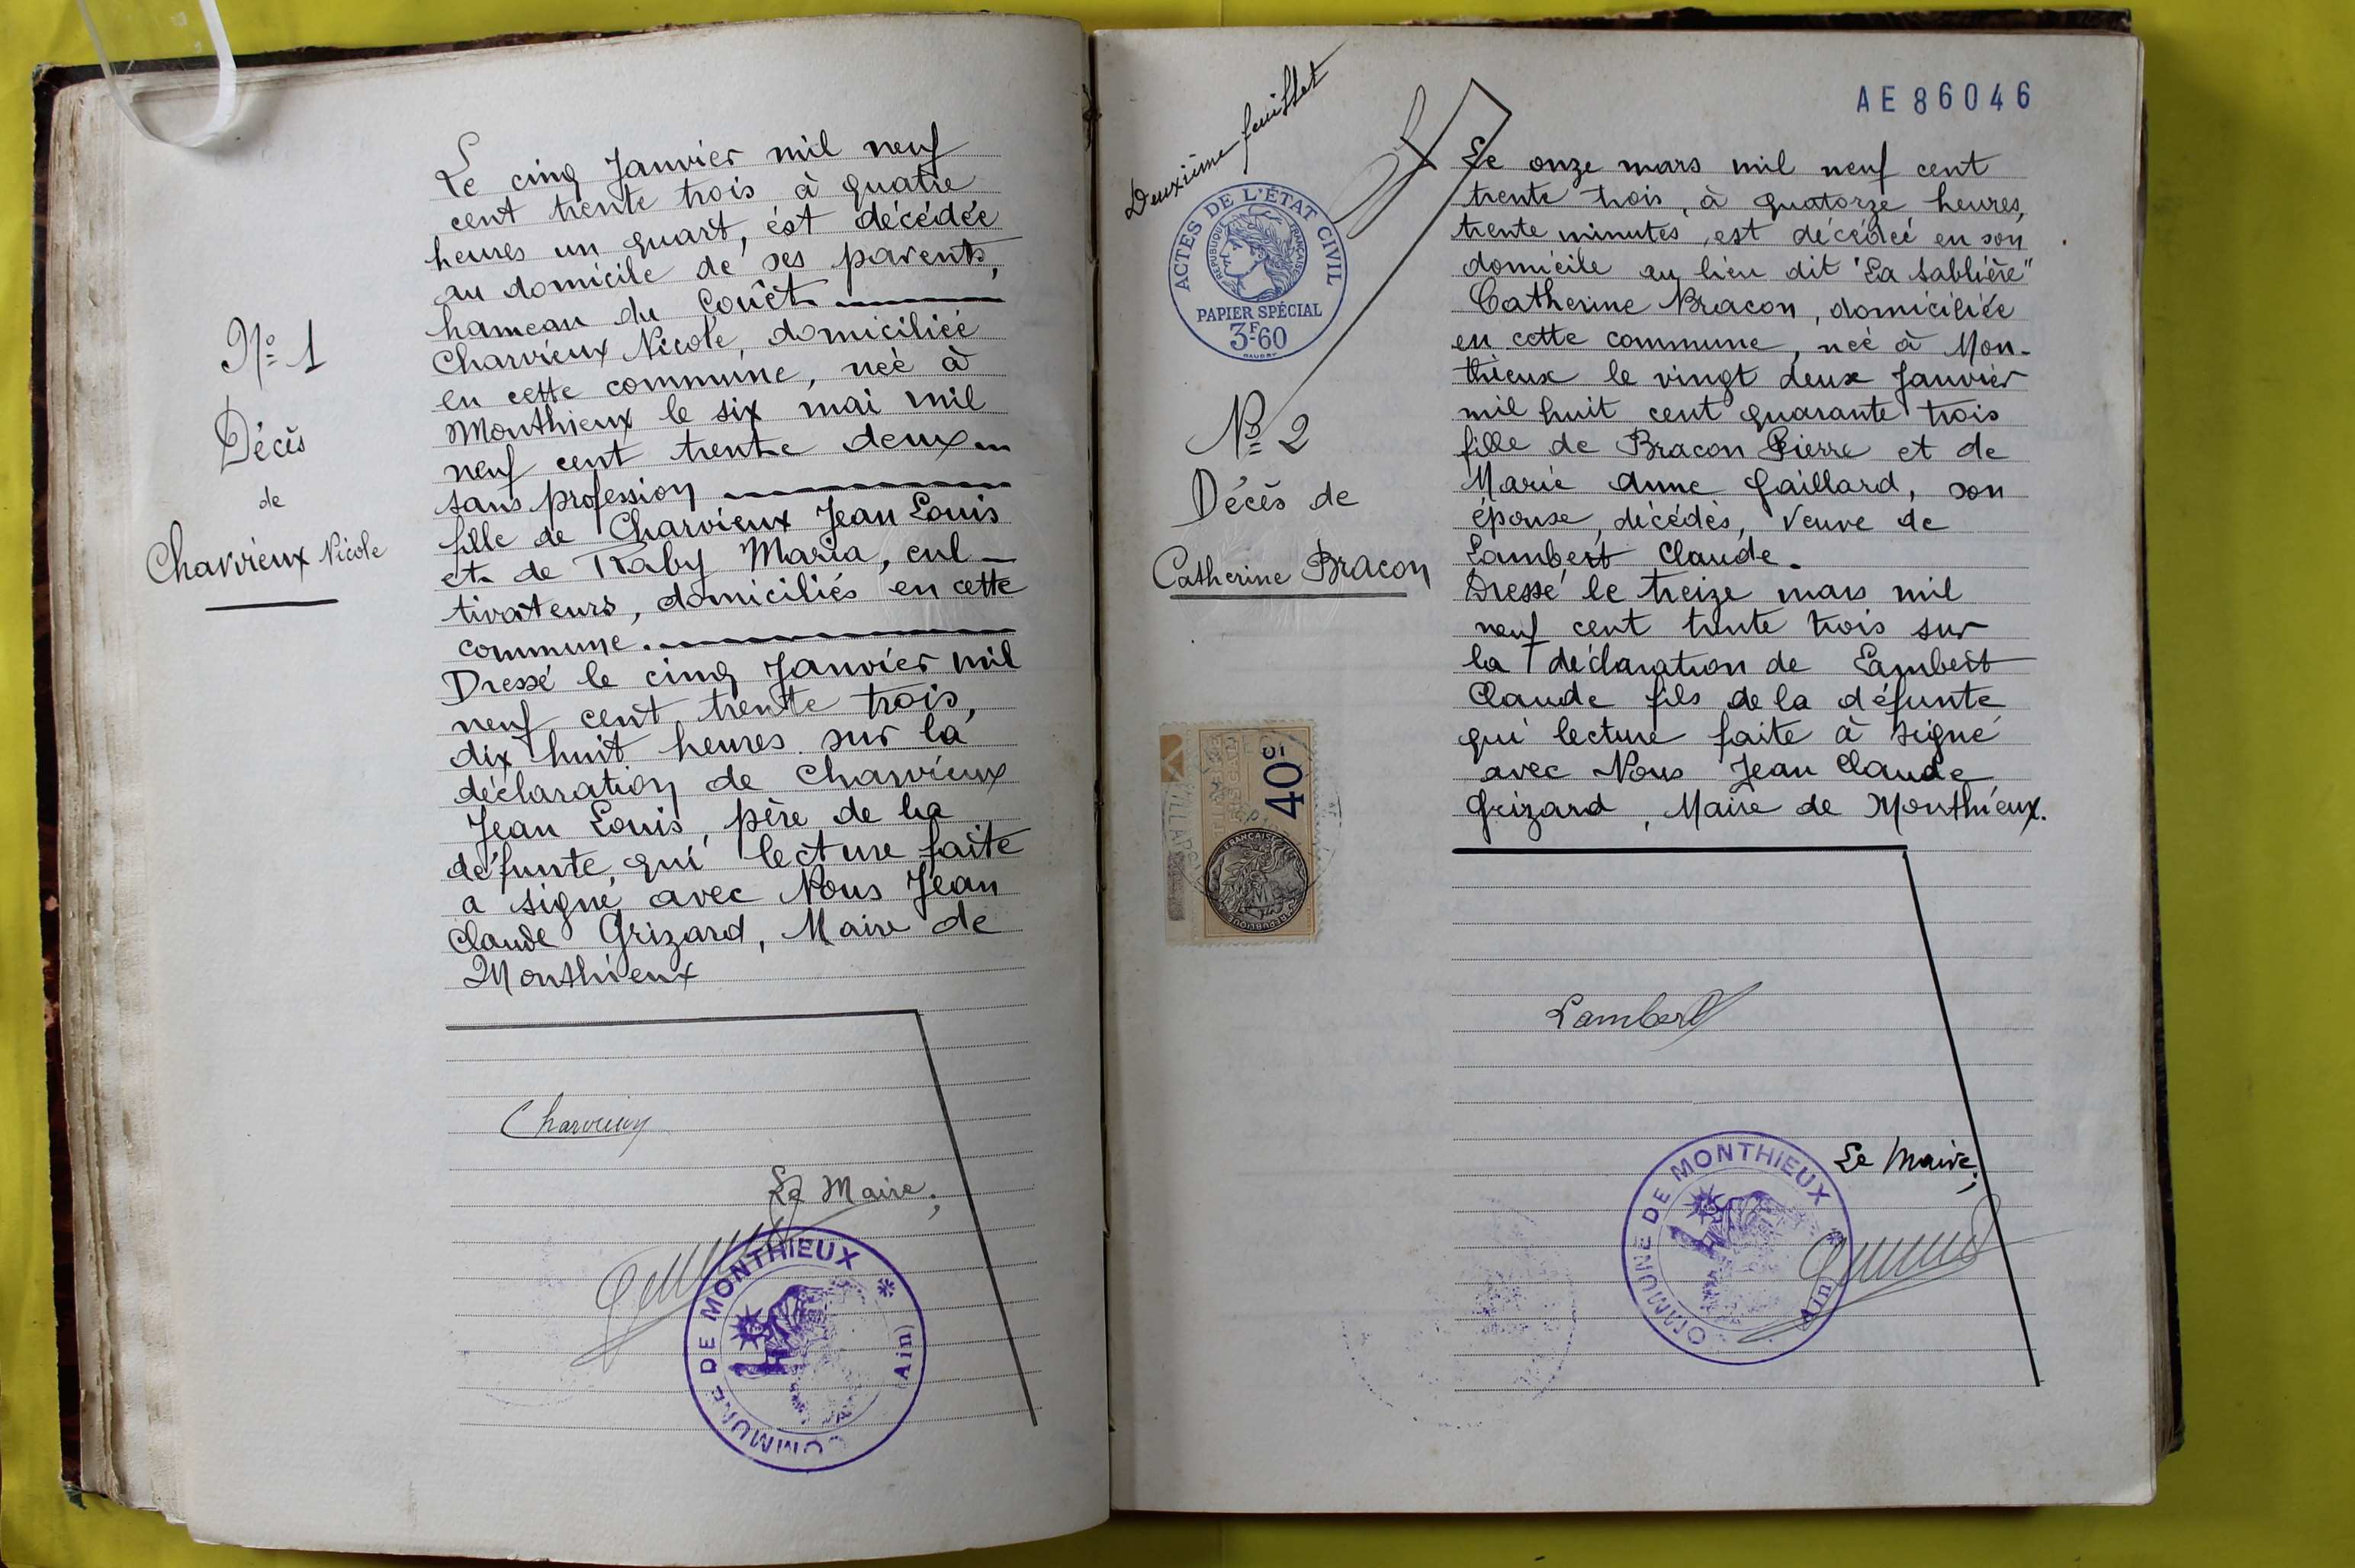 N° 1
Décès
de
Charvieux Nicole
Le cinq Janvier mil neuf
cent trente trois à quatre
heures un quart, ést décédée
au domicile de ses parents,
hameau du Couët
Charvieux Nicole, domiciliée
en cette commune, née à
Monthieux le six mai mil
neuf cent trente deux
sans profession
fille de Charvieux Jean Louis
et de Raby Maria, cul-
tivateurs, domiciliés en cette
commune.
Dressé le cinq Janvier mil
neuf cent trente trois,
dix huit heures sur la
déclaration de Charvieux
Jean Louis, père de la
défunte, qui lecture faite
a signé avec Nous Jean
Claude Grizard, Maire de
Monthieux
Charvieux
Le Maire,
COMMUNE DE MONTHIEUX * (Ain)
AE86046
Deuxième feuillet
ACTES DE L'ÉTAT CIVIL
RÉPUBLIQUE FRANÇAISE
PAPIER SPÉCIAL
3F.60
N° 2
Décès de
Catherine Bracon
40c
Le onze mars mil neuf cent
trente trois, à quatorze heures,
trente minutes, est décédée en son
domicile au lieu dit "La Sablière"
Catherine Bracon, domiciliée
en cette commune, née à Mon-
thieux le vingt deux Janvier
mil huit cent quarante trois
fille de Bracon Pierre et de
Marie Anne Gaillard, son
épouse, décédés, Veuve de
Lambert Claude.
Dressé le treize mars mil
neuf cent trente trois sur
la déclaration de Lambert
Claude fils de la défunte
qui lecture faite à signé
avec Nous Jean Claude
Grizard, Maire de Monthieux.
Lambert
Le Maire,
COMMUNE DE MONTHIEUX * (Ain)